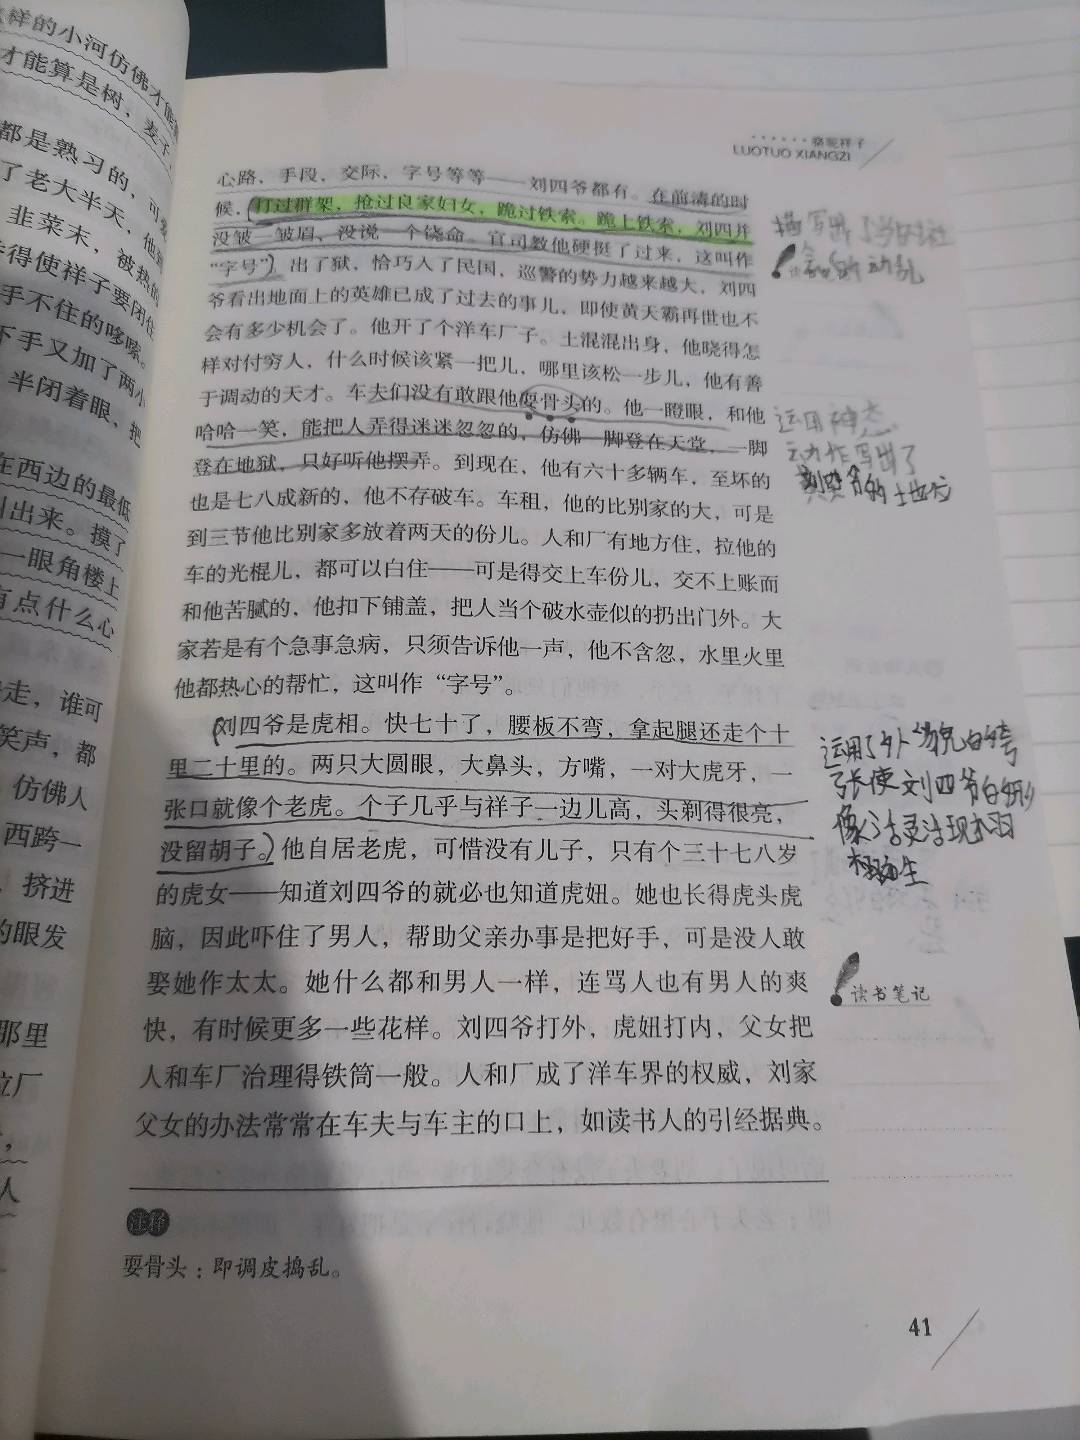 样的小河仿佛才能
才能算是树，麦子
都是熟习的，可爱
了老大半天，他
韭菜末，被热的
得使祥子要闭住
手不住的哆嗦。
下手又加了两小
半闭着眼，把
在西边的最低
出来。摸了
一眼角楼上
有点什么心
走，谁可
笑声，都
仿佛人
西跨一
挤进
的眼发
那里
厂
人
骆驼祥子
LUOTUO XIANGZI
心路、手段、交际、字号等等——刘四爷都有。在前清的时
候，打过群架，抢过良家妇女，跪过铁索。跪上铁索，刘四并
没皱一皱眉，没说一个饶命。官司教他硬挺了过来，这叫作
“字号”。出了狱，恰巧入了民国，巡警的势力越来越大，刘四
爷看出地面上的英雄已成了过去的事儿，即使黄天霸再世也不
会有多少机会了。他开了个洋车厂子。土混混出身，他晓得怎
样对付穷人，什么时候该紧一把儿，哪里该松一步儿，他有善
于调动的天才。车夫们没有敢跟他耍骨头的。他一瞪眼，和他
哈哈一笑，能把人弄得迷迷忽忽的，仿佛一脚登在天堂，一脚
登在地狱，只好听他摆弄。到现在，他有六十多辆车，至坏的
也是七八成新的，他不存破车。车租，他的比别家的大，可是
到三节他比别家多放着两天的份儿。人和厂有地方住，拉他的
车的光棍儿，都可以白住——可是得交上车份儿，交不上账而
和他苦腻的，他扣下铺盖，把人当个破水壶似的扔出门外。大
家若是有个急事急病，只须告诉他一声，他不含忽，水里火里
他都热心的帮忙，这叫作“字号”。
刘四爷是虎相。快七十了，腰板不弯，拿起腿还走个十
里二十里的。两只大圆眼，大鼻头，方嘴，一对大虎牙，一
张口就像个老虎。个子几乎与祥子一边儿高，头剃得很亮，
没留胡子。他自居老虎，可惜没有儿子，只有个三十七八岁
的虎女——知道刘四爷的就必也知道虎妞。她也长得虎头虎
脑，因此吓住了男人，帮助父亲办事是把好手，可是没人敢
娶她作太太。她什么都和男人一样，连骂人也有男人的爽
快，有时候更多一些花样。刘四爷打外，虎妞打内，父女把
人和车厂治理得铁筒一般。人和厂成了洋车界的权威，刘家
父女的办法常常在车夫与车主的口上，如读书人的引经据典。
描写出了当时社
会的动乱
运用神态
动作写出了
刘四爷的土地位
运用了外貌的夸
张使刘四爷的形
像灵活现栩
栩如生
读书笔记
注释
耍骨头：即调皮捣乱。
41